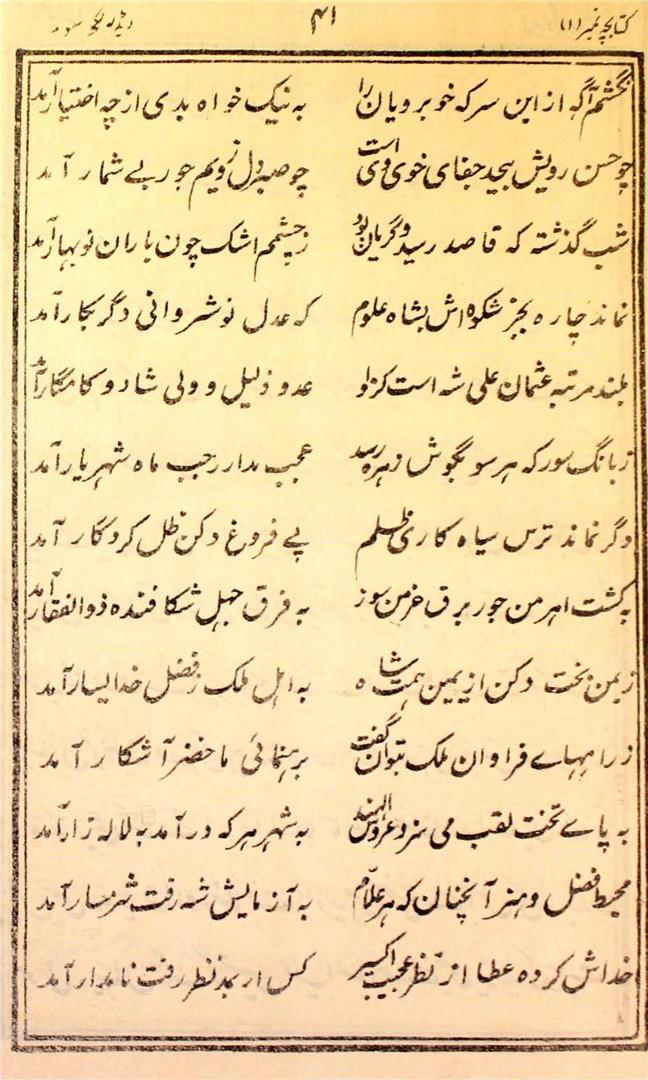 کتابچہ نمبر (۱) ۴۱
نگشتم آگہ ازین سرکہ خوبرویان را بہ نیک خواہ بدی از چہ اختیار آمد
چو حسن رویش بیحد جفای خوی وی است چو صبر دل زویم جور بے شمار آمد
شب گذشتہ کہ قاصد رسید و گریان بود ز چشمم اشک چون باران نوبہار آمد
نماند چارہ بجز شکوہ اش بشاہ علوم کہ عدل نوشروانی دگر بکار آمد
بلند مرتبہ عثمان علی شہ است کزاو عدو ذلیل و ولی شاد و کامگار آمد
ز بانگ سور کہ ہر سو بگوش زہرہ رسد عجب مدار رجب ماہ شہریار آمد
دگر نماند ترس سیاہ کاری ظلم پے فروغ دکن ظل کردگار آمد
بہ کشت اہرمن جور برق خرمن سوز بہ فرق جہل شکافندہ ذوالفقار آمد
ز یمن بخت دکن از یمین ہمت شاہ بہ اہل ملک ز فضل خدا یسار آمد
ز راہہاے فراوان ملک بتوان گفت برہنمائی ما خضر آشکار آمد
بہ پاے تخت لقب می سزد عروس الہند بہ شہر ہر کہ درآمد بہ لالہ زار آمد
محیط فضل و ہنر آنچنان کہ ہر علام بہ آزمایش شہ رفت شرمسار آمد
خداش کردہ عطا از نظر عجیب اکسیر کس ار بد نظر رفت نامدار آمد